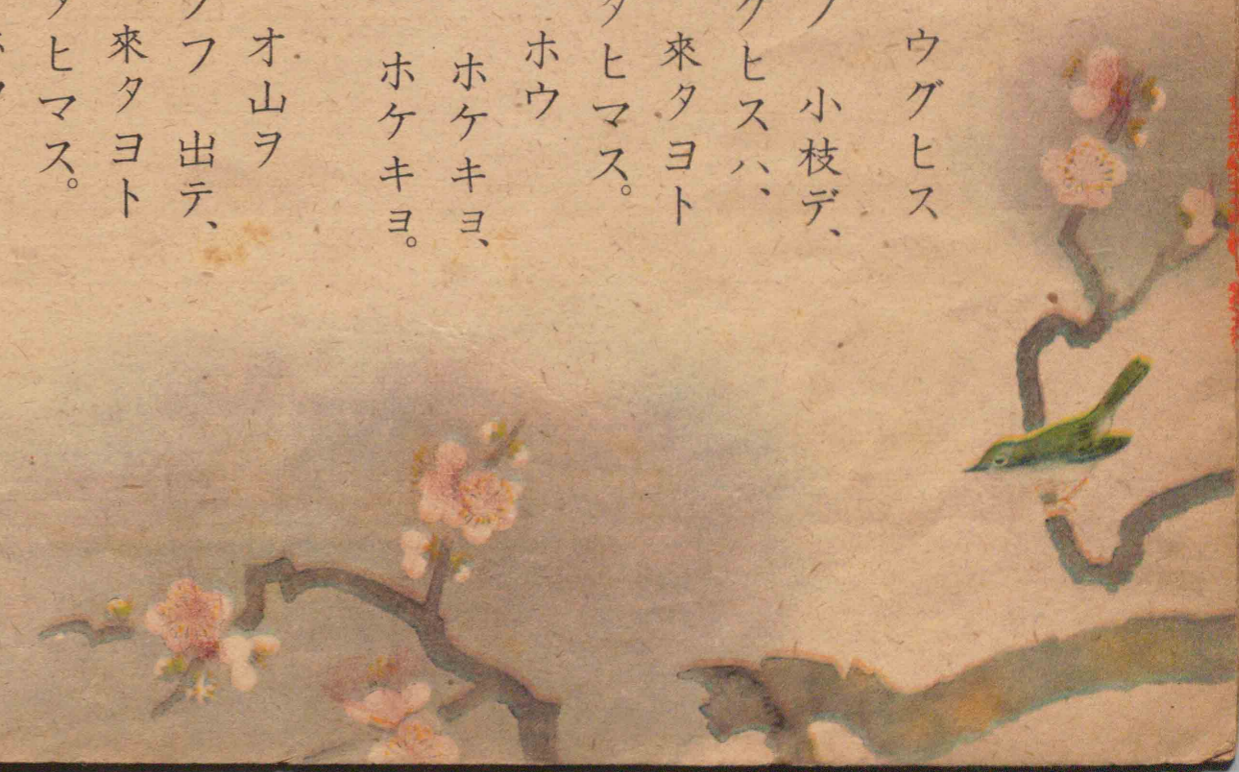 ウグヒス
小枝デ、
グヒスハ、
來タヨト
タヒマス。
ホウ
ホケキヨ、
ホケキヨ。
オ山ヲ
フ 出テ、
來タヨト
ヒマス。